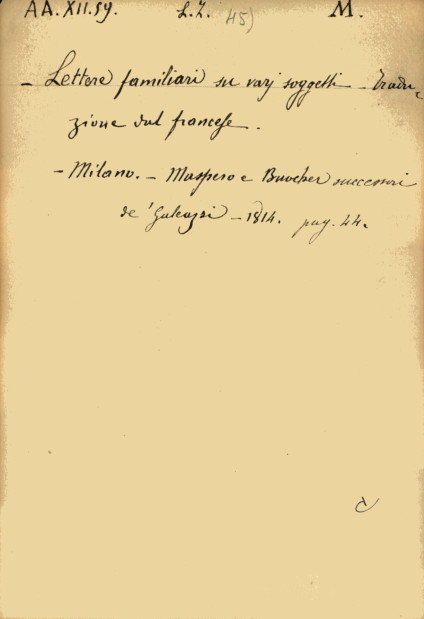 AA.XII.59. L.Z. 45) M.
- Lettere familiari su varj soggetti - Tradu-
zione dal francese.
- Milano. - Maspero e Buocher successori
de' Galeazzi - 1814. pag. 44.